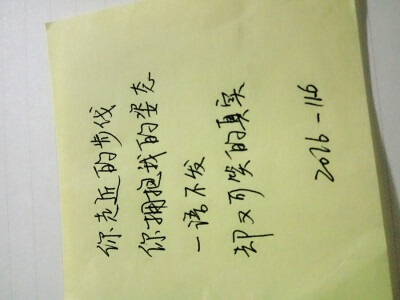 你走近的步伐
你拥抱我的姿态
一语不发
却又可笑的真实
2016-116